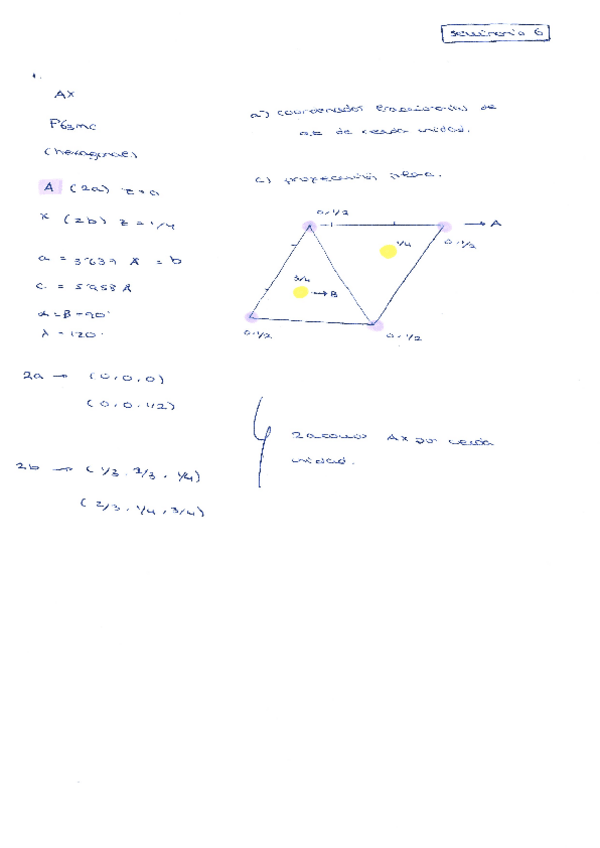 seminario 6
1.
AX
P63mc
(hexagonal)
A (2a) z=0
X (2b) z=1/4
a = 3'639 Å = b
c = 5'958 Å
α=β=90°
γ=120°
2a → (0,0,0)
(0,0,1/2)
2b → (1/3, 2/3, 1/4)
(2/3, 1/4, 3/4)
a) coordenadas de
de celda unidad.
c) proyección plana.
0,1/2
→ A
1/4
0,1/2
3/4
→ B
0,1/2
0,1/2
2 AX por celda
unidad.